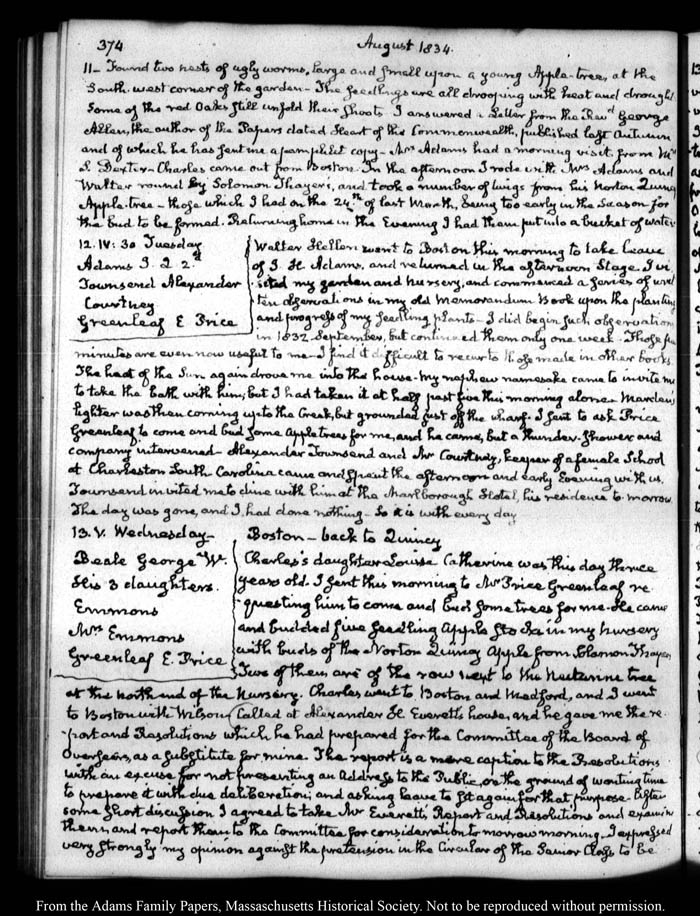 374
August 1834.
11- Found two nests of ugly worms, large and small upon a young Apple-tree, at the
South-west corner of the garden- The seedlings are all drooping with heat and drought
Some of the red Oaks still unfold their shoots- I answered a Letter from the Revd George
Allen, the author of the Papers dated Heart of the Commonwealth, published last Autumn
and of which he has sent me a pamphlet copy- Mrs Adams had a morning visit from Mrs
S. Dexter- Charles came out from Boston- In the afternoon I rode with Mrs Adams and
Walter round by Solomon Thayer's, and took a number of twigs from his Norton Quincy
Apple-tree- those which I had on the 24th of last Month, being too early in the Season for
the bud to be formed. Returning home in the Evening I had them put into a bucket of water
12. IV: 30 Tuesday
Adams I. H. 2d
Townsend Alexander
Courtney
Greenleaf E Price
Walter Hellen went to Boston this morning to take leave
of I. H. Adams, and returned in the afternoon Stage. I vi-
sited my garden and nursery, and commenced a series of writ
ten observations in my old Memorandum Book upon the planting
and progress of my seedling plants- I did begin such observations
in 1832. September, but continued them only one week- Those few
minutes are even now useful to me- I find it difficult to recur to those made in other books
The heat of the Sun again drove me into the house- My nephew namesake came to invite me
to take the bath with him; but I had taken it at half past five this morning alone- Marden's
lighter was then coming up to the Creek, but grounded just off the wharf- I sent to ask Price
Greenleaf to come and bud some Apple trees for me, and he came, but a thunder-shower and
company intervened- Alexander Townsend and Mr Courtney, keeper of a female School
at Charleston South-Carolina came and spent the afternoon and early Evening with us.
Townsend invited me to dine with him at the Marlborough Hotel, his residence to-morrow
The day was gone, and I had done nothing- So it is with every day
13. V. Wednesday-
Beale George W.
His 3 daughters.
Emmons
Mrs Emmons
Greenleaf E. Price
Boston- back to Quincy
Charles's daughter Louisa Catherine was this day three
years old. I sent this morning to Mr Price Greenleaf re-
questing him to come and bud some trees for me- He came
and budded five seedling Apple stocks in my nursery
with buds of the Norton Quincy Apple from Solomon Thayer
Two of them are of the row next to the Nectarine tree
at the north end of the Nursery. Charles went to Boston and Medford, and I went
to Boston with Wilson. Called at Alexander H. Everett's house, and he gave me the re-
port and Resolutions which he had prepared for the Committee of the Board of
Overseers, as a substitute for mine. The report is a mere caption to the Resolutions
with an excuse for not presenting an Address to the Public, on the ground of wanting time
to prepare it with due deliberation; and asking leave to sit again for that purpose- After
some short discussion I agreed to take Mr Everett's Report and Resolutions and examine
them and report them to the Committee for consideration to morrow morning. I expressed
very strongly my opinion against the pretension in the Circular of the Senior Class to be
From the Adams Family Papers, Massachusetts Historical Society. Not to be reproduced without permission.